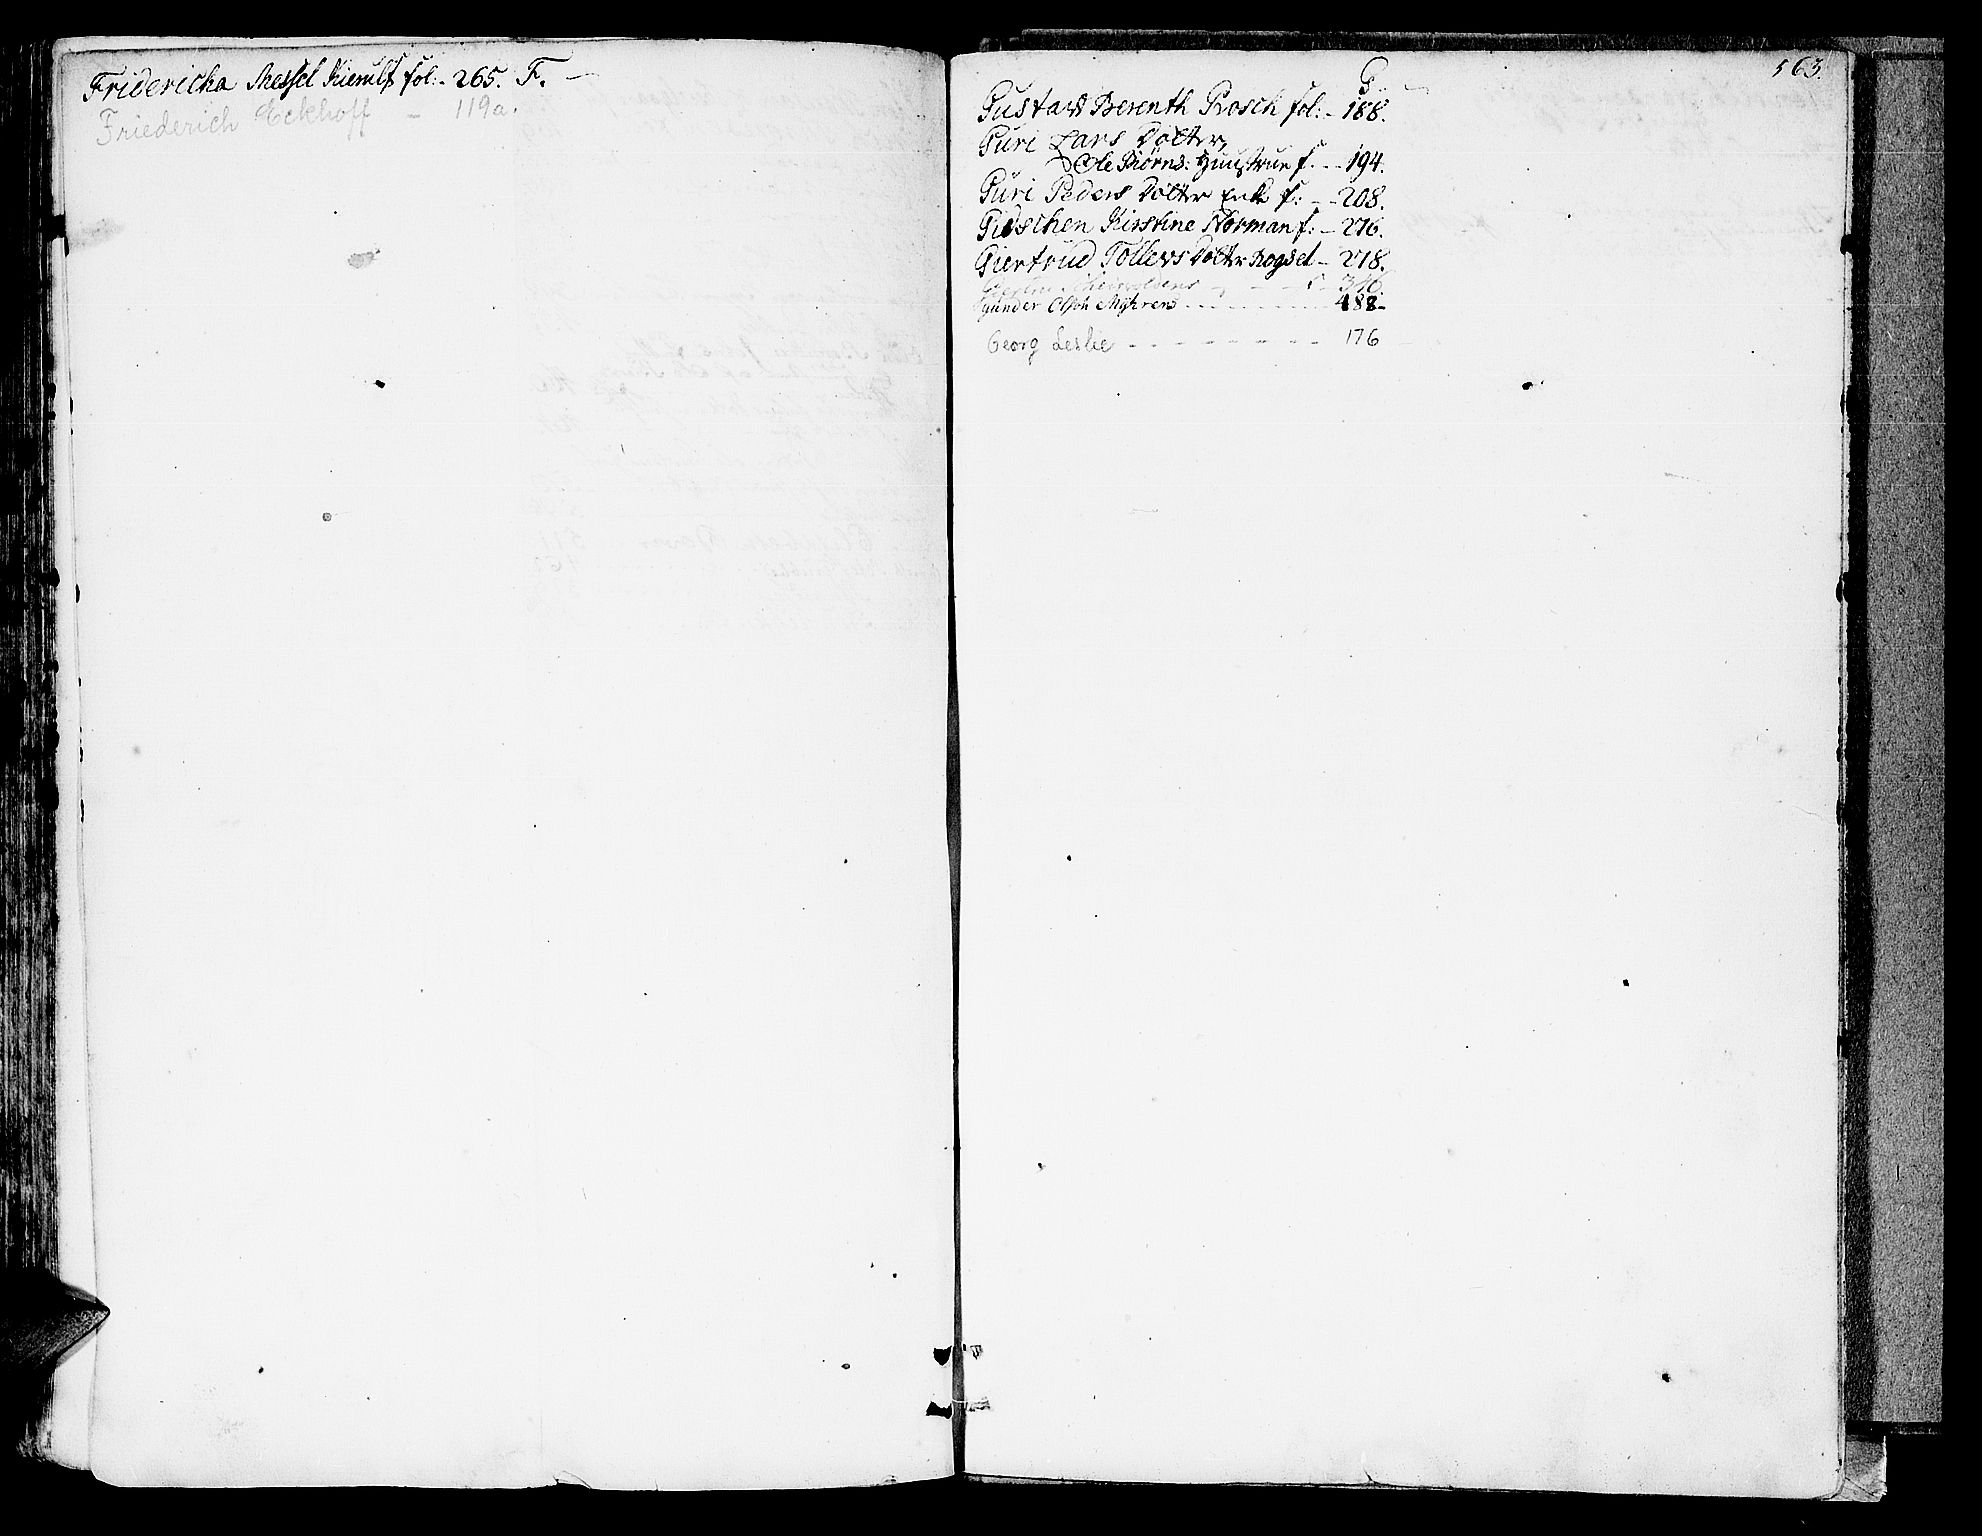 F.
Fridericha Messel Kierulf fol: - 265.
Friederich Eckhoff - 119a.
563.
G.
Gustavs Berenth Rosch fol: - 188.
Guri Lars Dotter,
Ole Biörns: Huustrue f. - - 194.
Guri Peders Dotter Enke f: - - 208.
Gidschen Kirstine Norman f: - 276.
Giertrud Tollevs Dotter Rogset - 278.
316.
Gunder Olsøn Myhrens - - - 488-
Georg Leslie - - - - - - - - 176